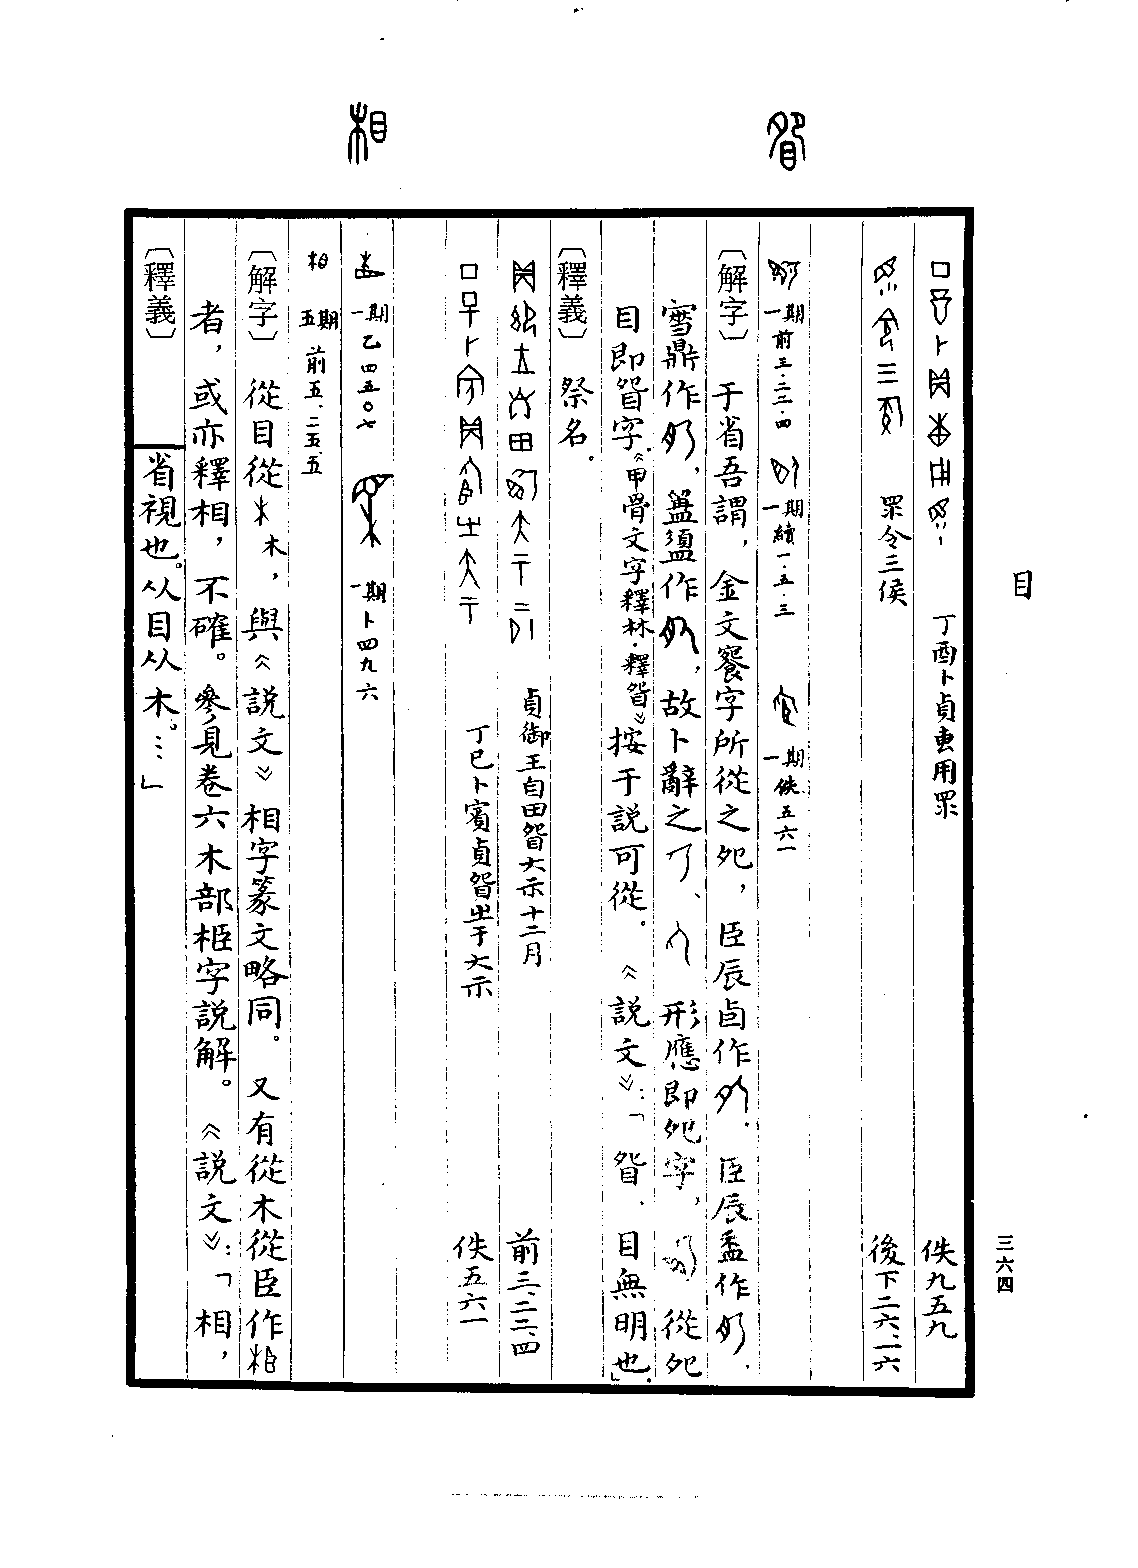 目
三六四
丁酉卜貞叀用眔 佚九五九
眔令三侯 後下二六·一六
眢
一期前三·二二·四 一期續一·五·三 一期佚五六一
〔解字〕 于省吾謂,金文餐字所從之夗,臣辰卣作 ,臣辰盉作 ,
鼎作 ,盨作 ,故卜辭之 、 形應即夗字, 從夗
目即眢字《甲骨文字釋林·釋眢》按于說可從。《說文》:「眢,目無明也」。
〔釋義〕 祭名。
貞御王自田眢大示十二月 前三、二二、四
丁巳卜賓貞眢㞢于大示 佚五六一
相
一期乙四五〇七 一期卜四九六
五期前五、二五、五
〔解字〕 從目從 木,與《說文》相字篆文略同。又有從木從臣作
者,或亦釋相,不確。參見卷六木部 字說解。《說文》:「相,
省視也。从目从木。…」
〔釋義〕